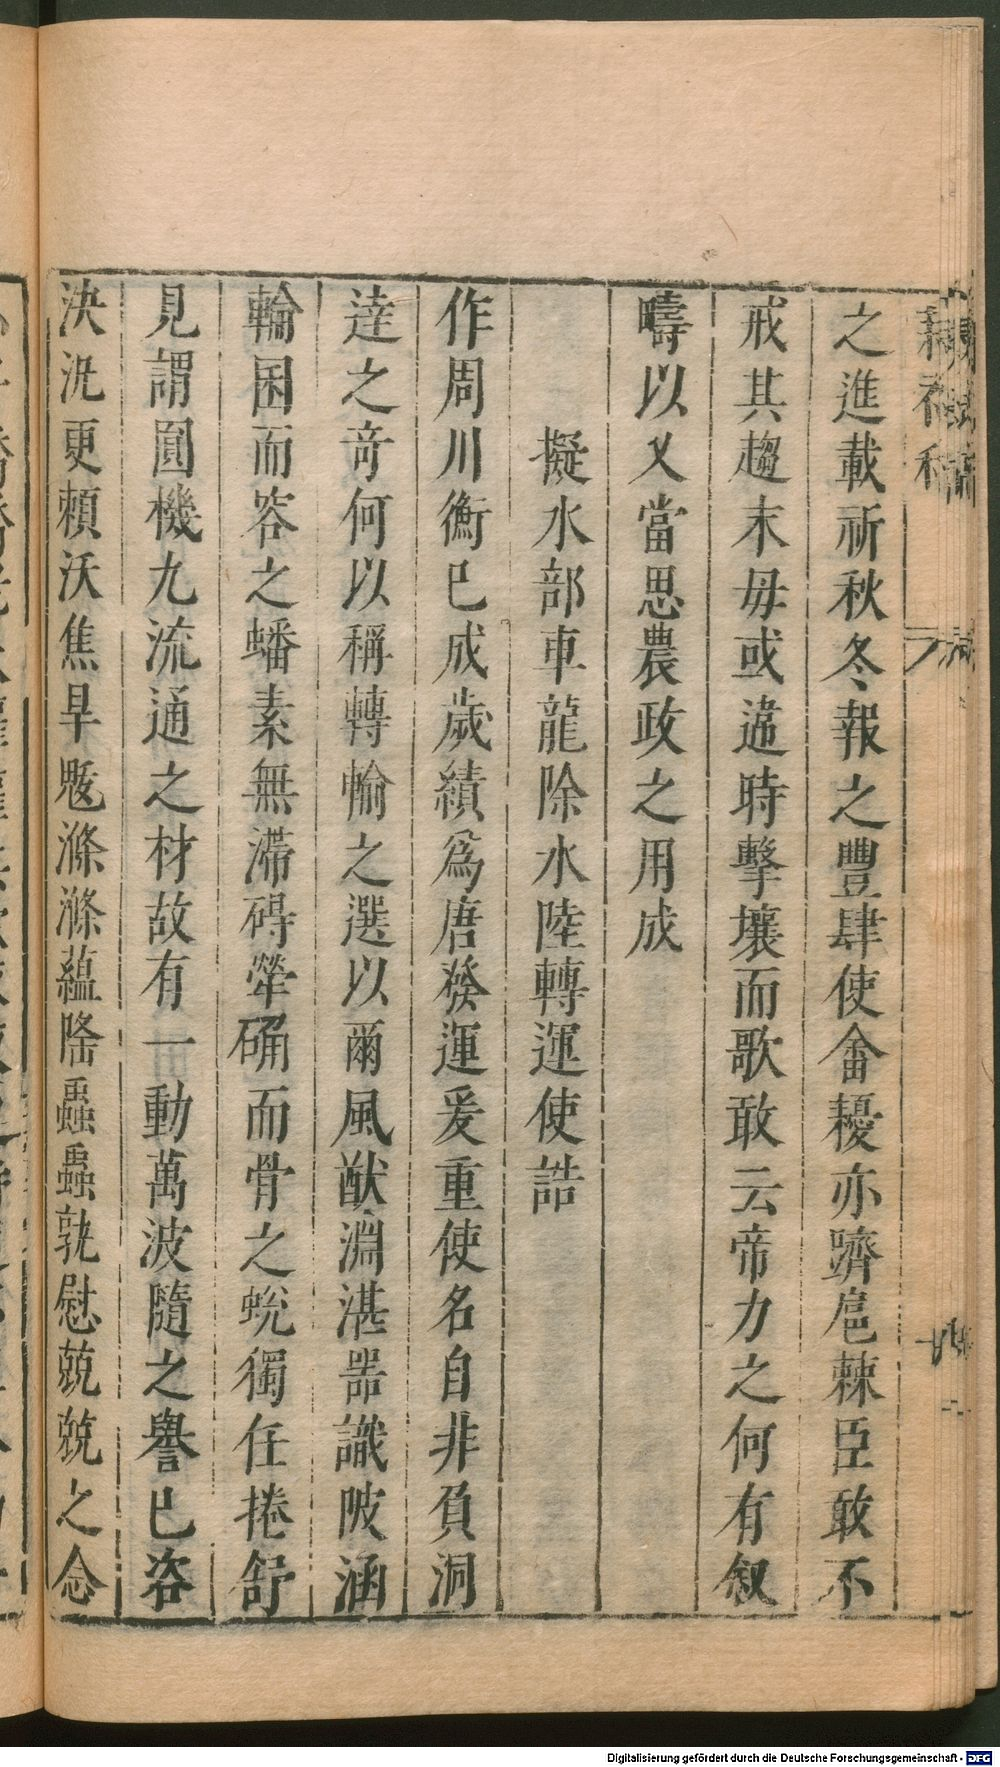 之進載祈秋冬報之豐肆使畬耰亦躋扈棘臣敢不
戒其趨末毋或違時擊壤而歌敢云帝力之何有叙
疇以乂當思農政之用成
擬水部車龍除水陸轉運使誥
作周川衡已成歲績爲唐發運爰重使名自非負洞
達之竒何以稱轉輸之選以爾風猷淵湛噐識陂涵
輪囷而容之蟠素無滯碍犖确而骨之蛻獨任捲舒
見謂圓機九流通之材故有一動萬波隨之譽已咨
決洗更頼沃焦旱魃滌滌蘊隆蟲蟲孰慰兢兢之念
Digitalisierung gefördert durch die Deutsche Forschungsgemeinschaft - DFG